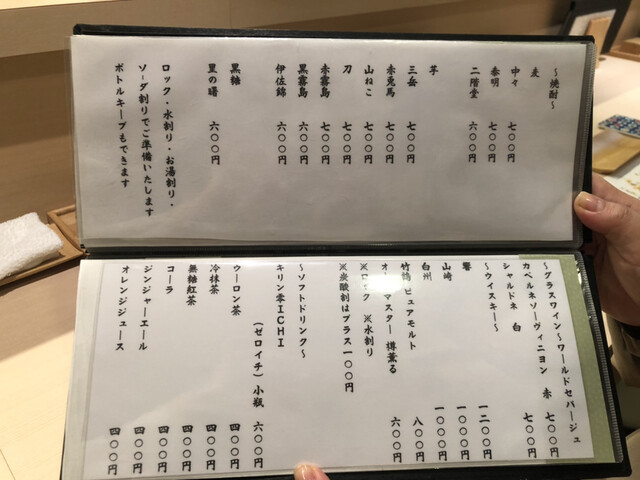 〜焼酎〜
麦
中々 七〇〇円
泰明 七〇〇円
二階堂 六〇〇円
芋
三岳 七〇〇円
赤兎馬 七〇〇円
山ねこ 七〇〇円
刀 七〇〇円
赤霧島 七〇〇円
黒霧島 六〇〇円
伊佐錦 六〇〇円
黒糖
里の曙 六〇〇円
ロック・水割り・お湯割り・
ソーダ割りでご準備いたします
ボトルキープもできます
〜グラスワイン〜ワールドセパージュ
カベルネソーヴィニヨン 赤 七〇〇円
シャルドネ 白 七〇〇円
〜ウイスキー〜
響 一二〇〇円
山崎 一〇〇〇円
白州 一〇〇〇円
竹鶴ピュアモルト 八〇〇円
オールドマスター 樽薫る 六〇〇円
※ロック ※水割り
※炭酸割はプラス一〇〇円
〜ソフトドリンク〜
キリン零ICHI
(ゼロイチ)小瓶 六〇〇円
ウーロン茶 四〇〇円
冷抹茶 四〇〇円
無糖紅茶 四〇〇円
コーラ 四〇〇円
ジンジャーエール 四〇〇円
オレンジジュース 四〇〇円